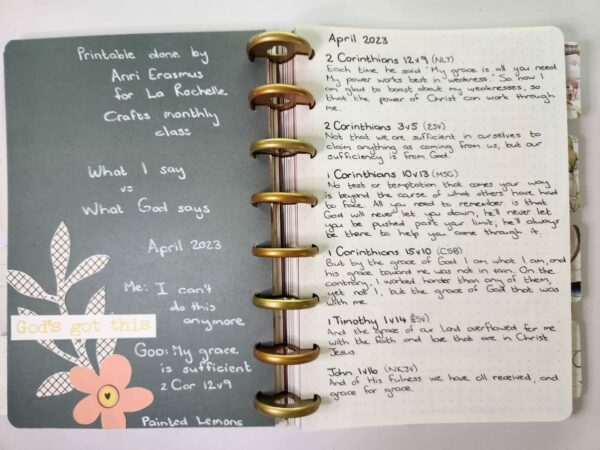 Printable done by
Anri Erasmus
for La Rochelle
Crafts monthly
class
What I say
vs
What God says
April 2023
Me: I can't
do this
anymore
God's got this
God: My grace
is sufficient
2 Cor 12v9
Painted Lemons
April 2023
2 Corinthians 12v9 (NLT)
Each time he said "My grace is all you need
My power works best in weakness." So now I
am glad to boast about my weaknesses, so
that the power of Christ can work through
me.
2 Corinthians 3v5 (ESV)
Not that we are sufficient in ourselves to
claim anything as coming from us, but our
sufficiency is from God.
1 Corinthians 10v13 (MSG)
No test or temptation that comes your way
is beyond the course of what others have had
to face. All you need to remember is that
God will never let you down; he'll never let
you be pushed past your limit; he'll always
be there to help you come through it.
1 Corinthians 15v10 (CSB)
But by the grace of God I am what I am, and
his grace toward me was not in vain. On the
contrary, I worked harder than any of them,
yet not I, but the grace of God that was
with me.
1 Timothy 1v14 (ESV)
And the grace of our Lord overflowed for me
with the faith and love that are in Christ
Jesus
John 1v16 (NKJV)
And of His fulness we have all received, and
grace for grace.